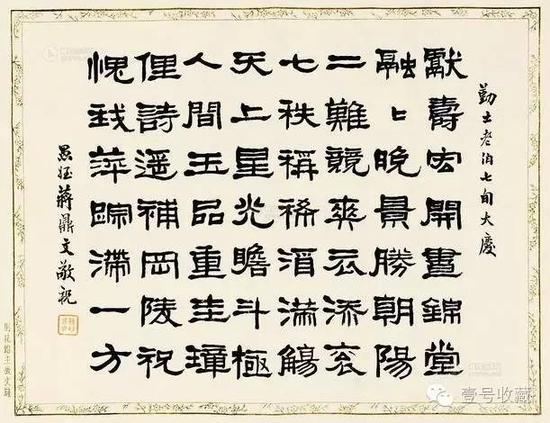 勤士老伯七旬大慶
獻壽宏開晝錦堂
融〻晚景勝朝陽
二難競爽衣添衮
七秩稱稀酒滿觴
天上星光瞻斗極
人間玉品重圭璋
俚詩遥補冈陵祝
愧我萍踪滯一方
愚姪蔣鼎文敬祝
壹号收藏